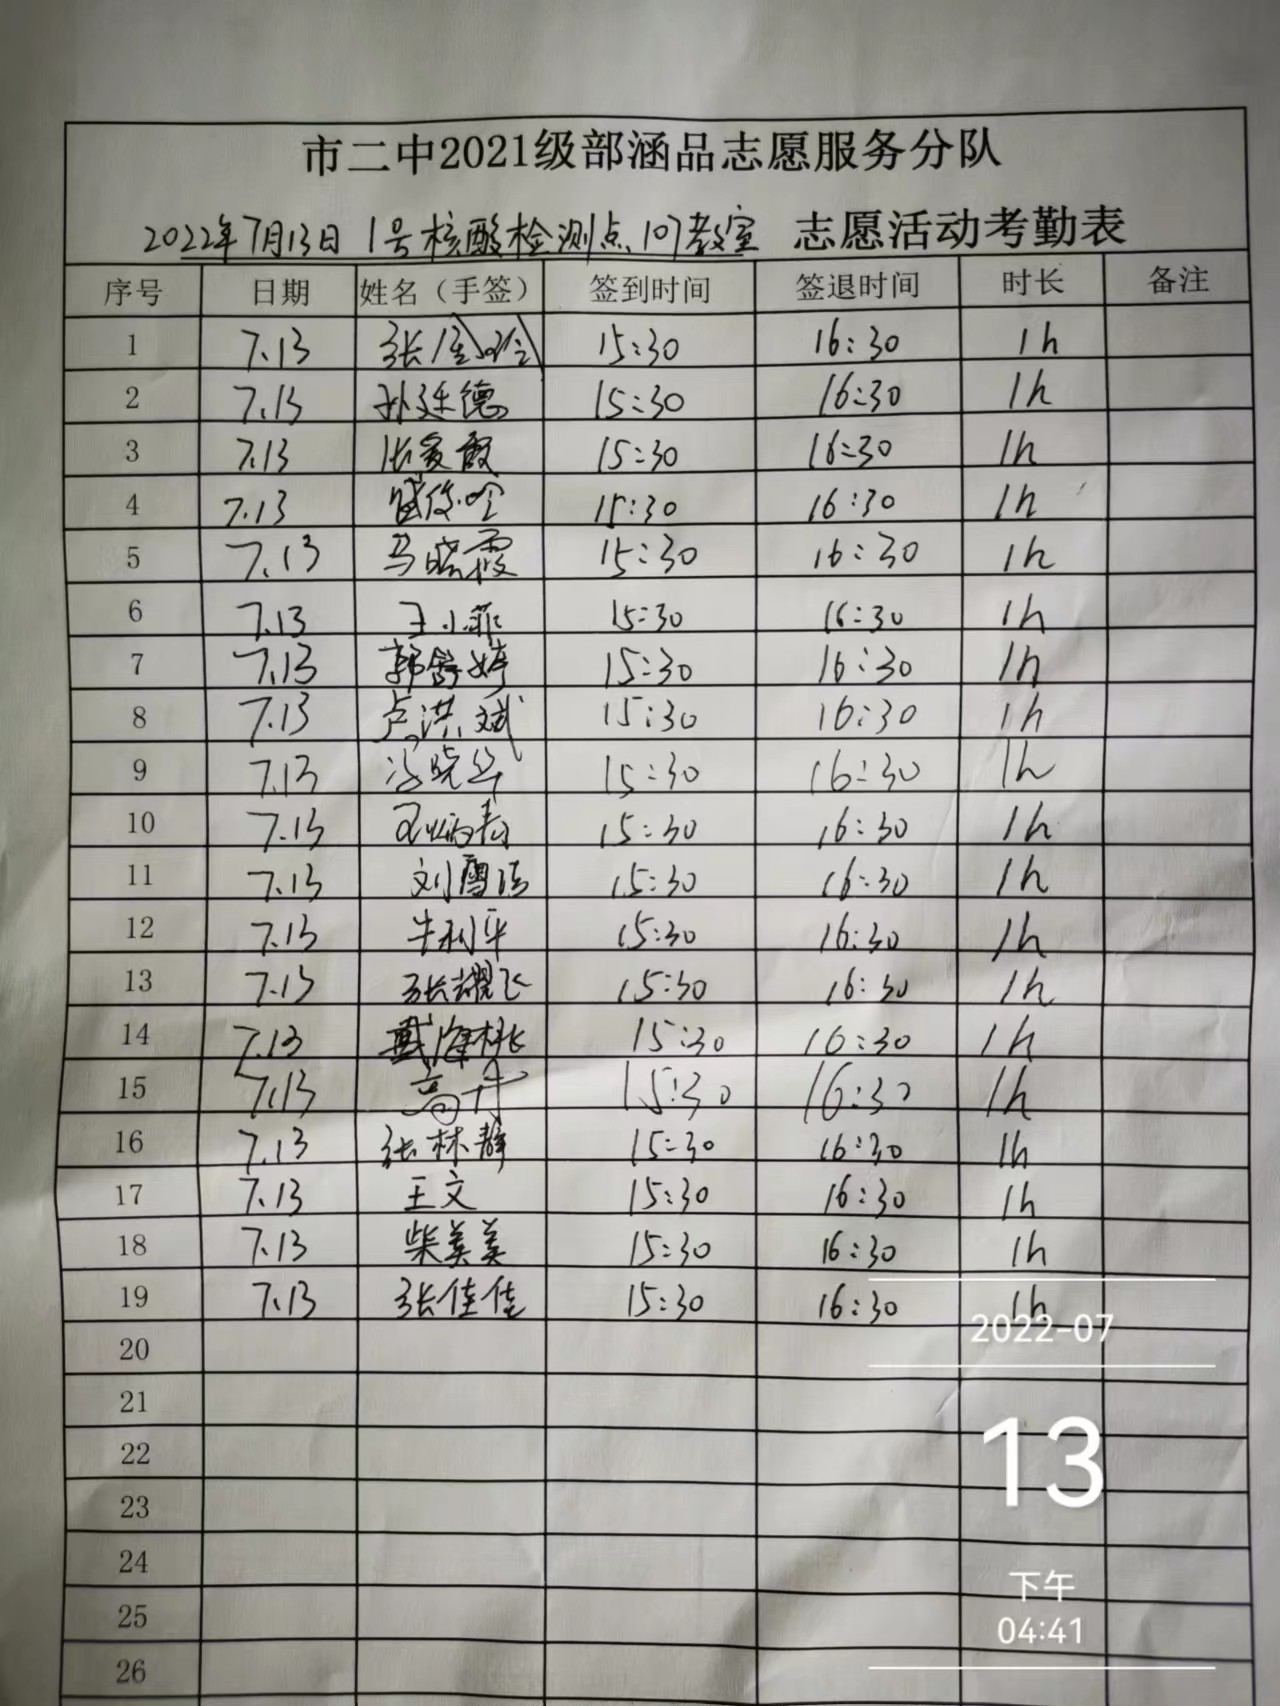 市二中2021级部涵品志愿服务分队
2022年7月13日 1号核酸检测点107教室 志愿活动考勤表
序号 日期 姓名（手签） 签到时间 签退时间 时长 备注
1 7.13 15:30 16:30 1h
2 7.13 孙廷德 15:30 16:30 1h
3 7.13 15:30 16:30 1h
4 7.13 15:30 16:30 1h
5 7.13 马晓霞 15:30 16:30 1h
6 7.13 王小菲 15:30 16:30 1h
7 7.13 郭舒婷 15:30 16:30 1h
8 7.13 卢洪斌 15:30 16:30 1h
9 7.13 15:30 16:30 1h
10 7.13 15:30 16:30 1h
11 7.13 刘雪洁 15:30 16:30 1h
12 7.13 牛利华 15:30 16:30 1h
13 7.13 张耀飞 15:30 16:30 1h
14 7.13 戴海桃 15:30 16:30 1h
15 7.13 高丹 15:30 16:30 1h
16 7.13 张林静 15:30 16:30 1h
17 7.13 王文 15:30 16:30 1h
18 7.13 柴美美 15:30 16:30 1h
19 7.13 张佳佳 15:30 16:30 1h
2022-07
20
21
22
13
23
24
下午
25
04:41
26